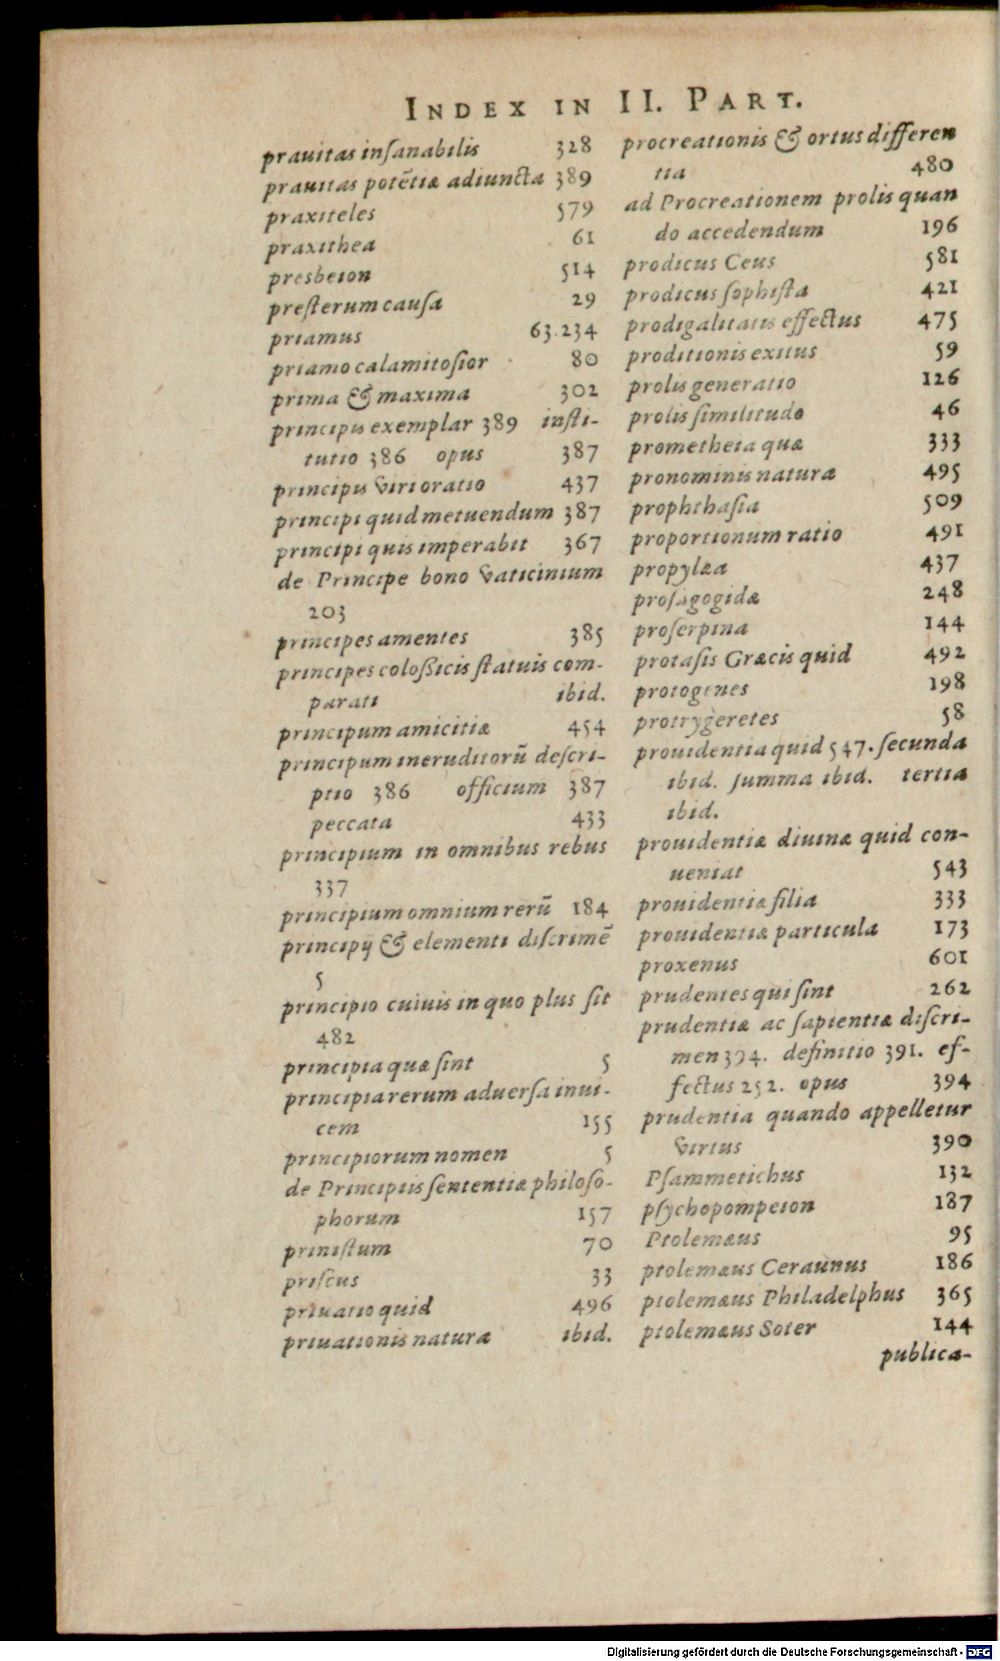 INDEX IN II. PART.
prauitas inſanabilis 328
prauitas potẽtiæ adiuncta 389
praxiteles 579
praxithea 61
presbeion 514
preſterum cauſa 29
priamus 63.234
priamo calamitoſior 80
prima & maxima 302
principis exemplar 389 inſti-
tutio 386 opus 387
principis viri oratio 437
principi quid metuendum 387
principi quis imperabit 367
de Principe bono vaticinium
203
principes amentes 385
principes coloßicis ſtatuis com-
parati ibid.
principum amicitiæ 454
principum ineruditorũ deſcri-
ptio 386 officium 387
peccata 433
principium in omnibus rebus
337
principium omnium rerũ 184
principij & elementi diſcrimẽ
5
principio cuiuis in quo plus ſit
482
principia quæ ſint 5
principia rerum aduerſa inui-
cem 155
principiorum nomen 5
de Principiis ſententiæ philoſo-
phorum 157
priniſtum 70
priſcus 33
priuatio quid 496
priuationis natura ibid.
procreationis & ortus differen
tia 480
ad Procreationem prolis quan
do accedendum 196
prodicus Ceus 581
prodicus ſophiſta 421
prodigalitatis effectus 475
proditionis exitus 59
prolis generatio 126
prolis ſimilitudo 46
prometheia quæ 333
pronominis natura 495
prophthaſia 509
proportionum ratio 491
propylæa 437
proſagogidæ 248
proſerpina 144
protaſis Græcis quid 492
protogenes 198
protrygeretes 58
prouidentia quid 547. ſecunda
ibid. ſumma ibid. tertia
ibid.
prouidentiæ diuinæ quid con-
ueniat 543
prouidentiæ filia 333
prouidentiæ particula 173
proxenus 601
prudentes qui ſint 262
prudentiæ ac ſapientiæ diſcri-
men 394. definitio 391. ef-
fectus 252. opus 394
prudentia quando appelletur
virtus 390
Pſammetichus 132
pſychopompeion 187
Ptolemæus 95
ptolemæus Ceraunus 186
ptolemæus Philadelphus 365
ptolemæus Soter 144
publica-
Digitalisierung gefördert durch die Deutsche Forschungsgemeinschaft - DFG